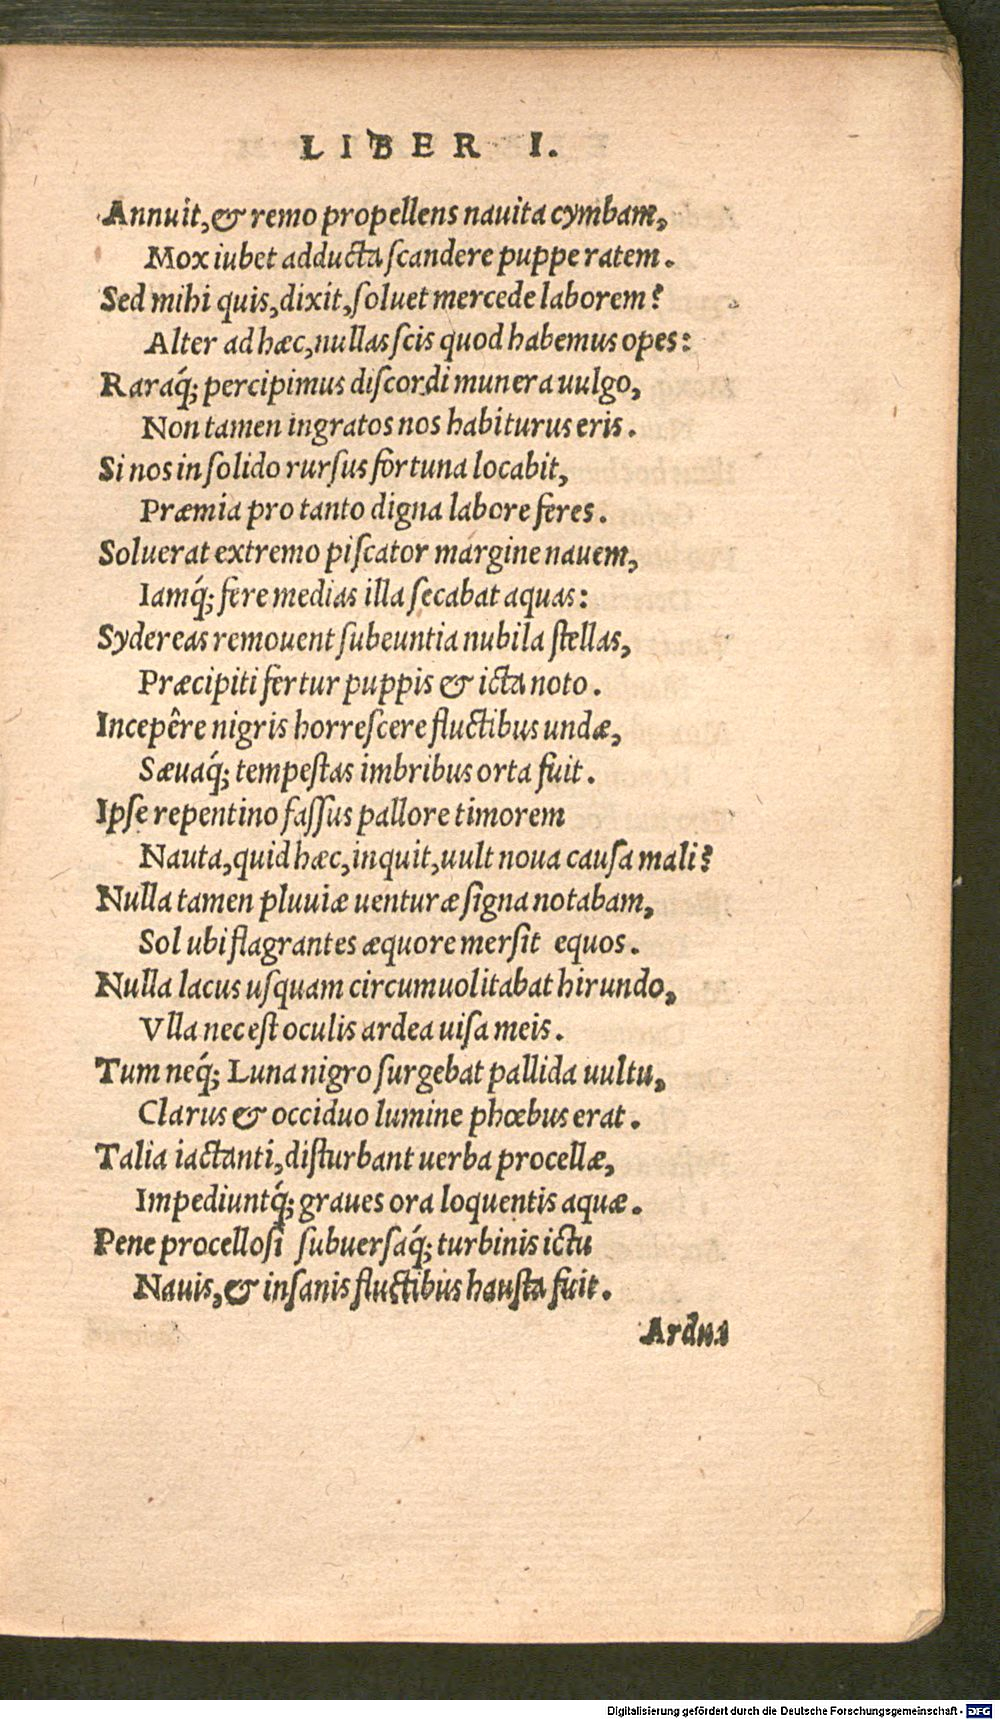 LIBER I.
Annuit, & remo propellens nauita cymbam,
Mox iubet adducta scandere puppe ratem.
Sed mihi quis, dixit, soluet mercede laborem?
Alter ad hæc, nullas scis quod habemus opes:
Raraq́; percipimus discordi munera uulgo,
Non tamen ingratos nos habiturus eris.
Si nos in solido rursus fortuna locabit,
Præmia pro tanto digna labore feres.
Soluerat extremo piscator margine nauem,
Iamq́; fere medias illa secabat aquas:
Sydereas remouent subeuntia nubila stellas,
Præcipiti fertur puppis & icta noto.
Incepêre nigris horrescere fluctibus undæ,
Sæuaq́; tempestas imbribus orta fuit.
Ipse repentino fassus pallore timorem
Nauta, quid hæc, inquit, uult noua causa mali?
Nulla tamen pluuiæ uenturæ signa notabam,
Sol ubi flagrantes æquore mersit equos.
Nulla lacus usquam circumuolitabat hirundo,
Vlla nec est oculis ardea uisa meis.
Tum neq́; Luna nigro surgebat pallida uultu,
Clarus & occiduo lumine phœbus erat.
Talia iactanti, disturbant uerba procellæ,
Impediuntq́; graues ora loquentis aquæ.
Pene procellosi subuersaq́; turbinis ictu
Nauis, & insanis fluctibus hausta fuit.
Ardua
Digitalisierung gefördert durch die Deutsche Forschungsgemeinschaft - DFG